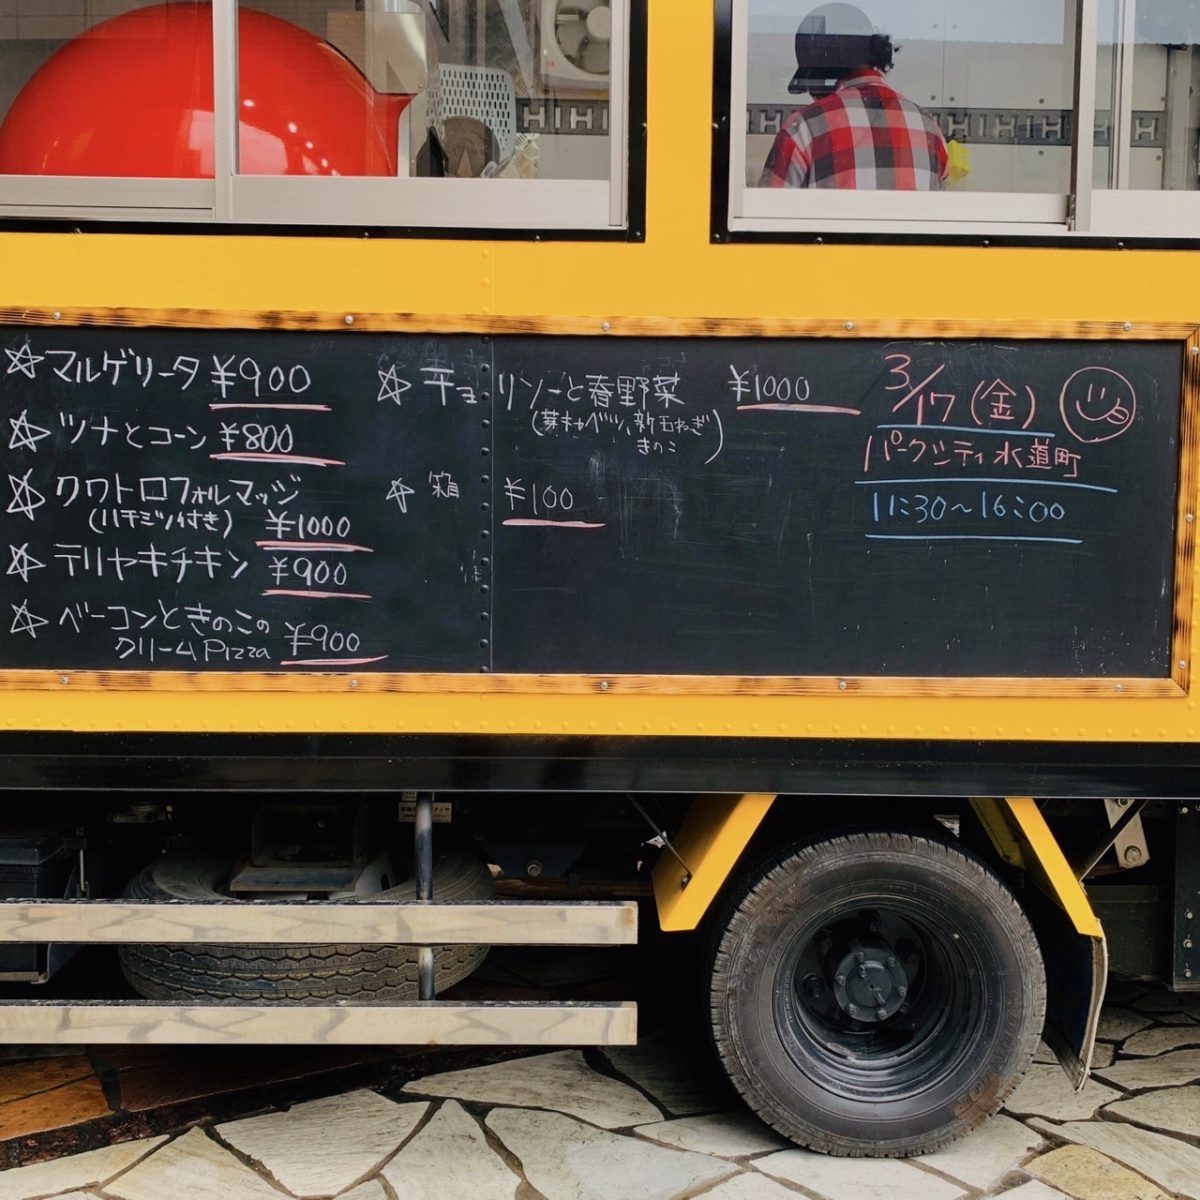 ☆マルゲリータ ¥900
☆ツナとコーン ¥800
☆クワトロフォルマッジ
(ハチミツ付き) ¥1000
☆テリヤキチキン ¥900
☆ベーコンときのこの
クリームPizza ¥900
☆チョリソーと春野菜 ¥1000
(芽キャベツ、新玉ねぎ
きのこ)
☆箱 ¥100
3/17(金)
パークシティ水道町
11:30〜16:00